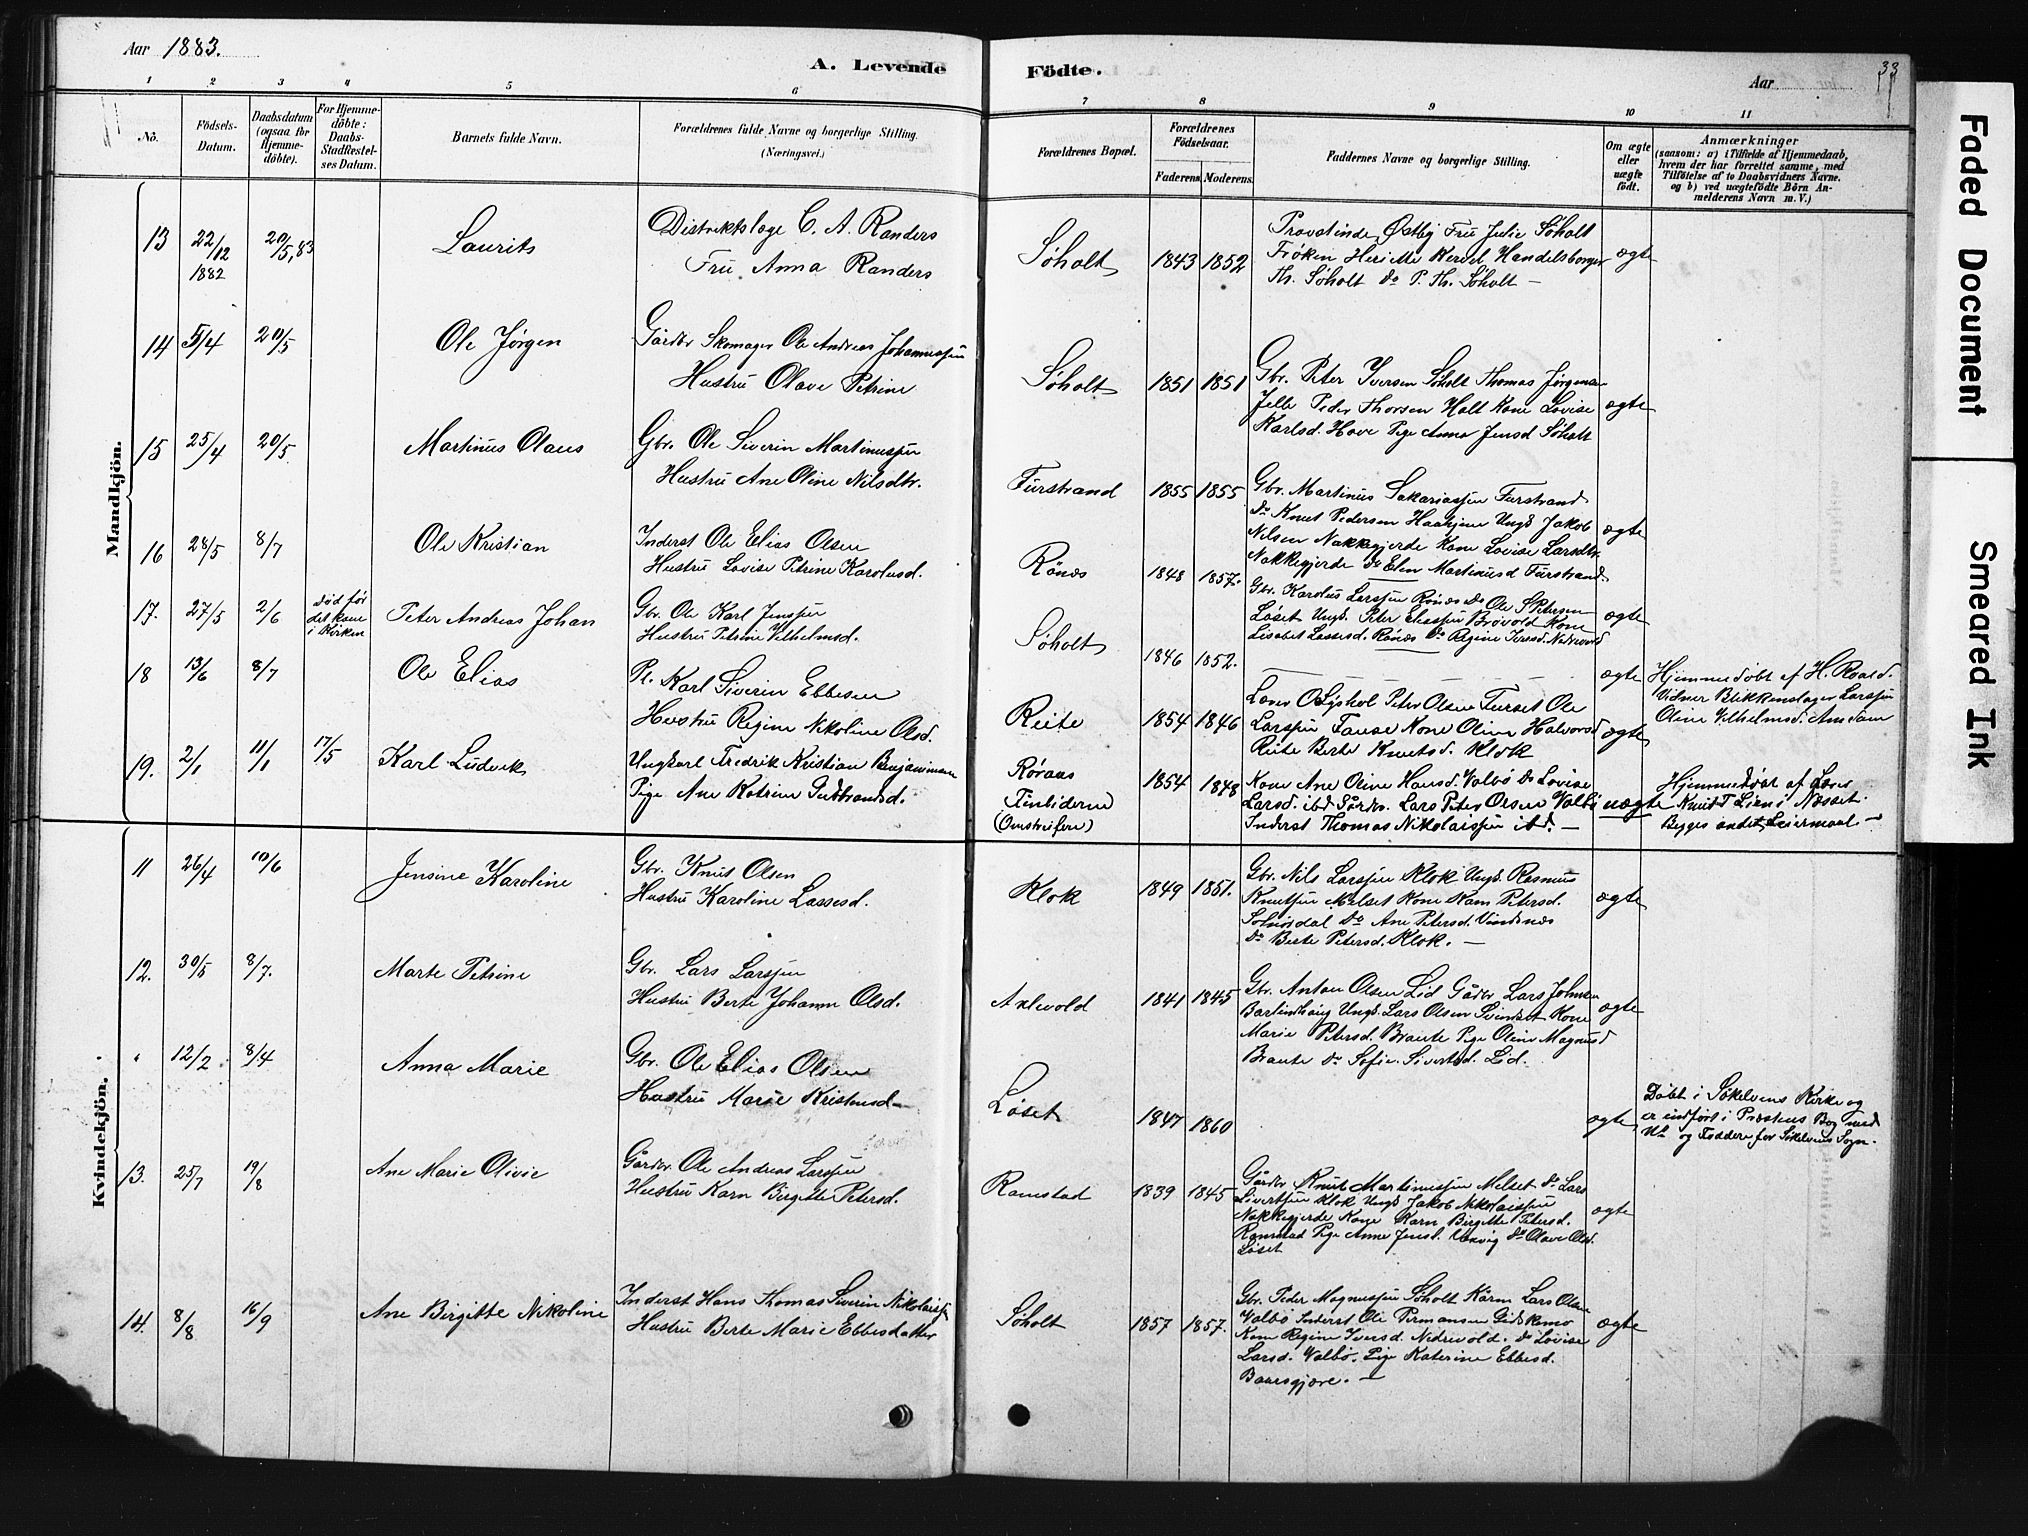 Aar 1883.
A. Levende Födte.
Aar
33
1 2 3 4 5 6 7 8 9 10 11
No.
Födsels-Datum.
Daabsdatum (ogsaa for Hjemme-döbte).
For Hjemme-döbte: Daabs-Stadfæstel-ses Datum.
Barnets fulde Navn.
Forældrenes fulde Navne og borgerlige Stilling.
(Næringsvei.)
Forældrenes Bopæl.
Forældrenes Födselsaar.
Faderens. Moderens.
Faddernes Navne og borgerlige Stilling.
Om ægte eller uægte födt.
Anmærkninger
(saasom: a) i Tilfælde af Hjemmedaab,
hvem der har forrettet samme, med
Tilföielse af to Daabsvidners Navne.
og b) ved uægtefödte Börn An-
melderens Navn m. V.)
Mandkjön.
13 22/12 1882 20/5, 83 Laurits
Distriktslæge C. A. Randers
Fru Anna Randers
Søholt 1843 1852
Provstinde Østby Fru Julie Søholt
Frøken Heriette Handelsborger
Th. Søholt do P. Th. Søholt —
ægte
14 5/4 20/5 Ole Jørgen
Gårdbr Skomager Ole Andreas Johannessen
Hustru Olave Petrine
Søholt 1851 1851
Gbr. Peter Iversen Søholt Thomas Jørgensen
Peder Thorsen Holt Kone Lovise
Karlsd. Hove Pige Anna Jensd Søholt
ægte
15 25/4 20/5 Martinus Olaus
Gbr. Ole Siverin Martinussen
Hustru Ane Oline Nilsdtr.
Furstrand 1855 1855
Gbr. Martinus Sakariassen Furstrand
do Knut Pedersen Ungk Jakob
Nilsen Nakkegjerde Kone Lovise Larsdtr.
Nakkegjerde do Elen Martinusd Furstrand
ægte
16 28/5 8/7 Ole Kristian
Inderst Ole Elias Olsen
Hustru Lovise Petrine Karolusd.
Rönæs 1848 1857.
Gbr. Karolus Larssen Rönæs do Ole S Petersen
Løset Ungk. Peter Eliassen Kone
Lisabet Lassesd. Rönæs do Regine Iversd. Nedrevold
ægte
17. 27/5 2/6 død før det kom i Kirken Peter Andreas Johan
Gbr. Ole Karl Jenssen
Hustru Petrine Vilhelmsd.
Søholt 1846 1852.
ægte
Hjemmedøbt af H. Roald.
Vidner Blikkenslager Larssen
Oline Vilhelmsd. Amdam
18 13/6 8/7 Ole Elias
Pl. Karl Siverin Ebbesen
Hustru Regine Nikoline Olsd.
Reite 1854 1846
Lærer O Peter Olsen Furset Ole
Larssen Fause Kone Oline Halvorsd
Reite Berte Knutsd. Klok
ægte
19. 2/1 11/1 17/5 Karl Ludvik
Ungkarl Fredrik Kristian Benjaminsen
Pige Ane Katrine Gudbrandsd.
Röraas
(Omstreifere)
1854 1848
Kone Ane Oline Hansd. Valbö do Lovise
Larsd. ibd Gårdbr. Lars Peter Olsen Valbö
Inderst Thomas Nikolaissen ibd. —
uægte
Hjemmedøbt af Lærer
Knut T Liems Næsset.
Begges andet Leiermaal —
Kvindekjön.
11 26/4 10/6 Jensine Karoline
Gbr. Knut Olsen
Hustru Karoline Lassesd.
Klok 1849 1851.
Gbr. Nils Larssen Klok Ungk. Rasmus
Knutsen Melset Kone Karn Petersd.
Solnørdal do Ane Petersd. Vindsnes
do Berte Petersd. Klok. —
ægte
12. 30/5 8/7. Marte Petrine
Gbr. Lars Larssen
Hustru Berte Johanne Olsd.
Aklevold 1841 1845
Gbr. Anton Olsen Lid Gårdbr Lars Johnsen
Ungk. Lars Olsen Svindset Kone
Marie Petersd. Braute Pige Oline Magnusd
Braute do Sofie Sivertsd. Lid.
ægte
" 12/2 8/4 Anna Marie
Gbr. Ole Elias Olsen
Hustru Marie Kristensd—
Løset 1847 1860
ægte
Døbt i Søkelvens Kirke og
er indført i Præstens Bog med
No og Faddere for Søkelvens Sogn.
13. 25/7 19/8 Ane Marie Olivie
Gårdbr. Ole Andreas Larssen
Hustru Karn Birgitte Petersd.
Ramstad 1839 1845
Gårdbr Knut Martinussen Melset do Lars
Sivertsen Klok Ungk Jakob Nikolaissen
Nakkegjerde Kone Karn Birgitte Petersd.
Ramstad Pige Anne Jensd. do Olave Olsd.
Løset
ægte
14. 8/8 16/9 Ane Birgitte Nikoline
Inderst Hans Thomas Siverin Nikolaissen
Hustru Berte Marie Ebbesdatter
Søholt 1857 1857.
Gbr. Peder Magnussen Søholt Lars Olsen
Valbö Inderst Ole
Kone Regine Iversd. Nedrevold. do Lovise
Larsd. Valbö. Pige Katerine Ebbesd.
ægte
Faded Document
Smeared Ink